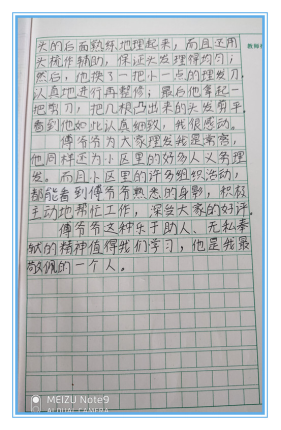 头的后面熟练地理起来，而且还用
头梳作辅助，保证头发理得均匀；
然后，他换了一把小一点的理发刀，
认真地进行再整修；最后他拿起一
把剪刀，把几根凸出来的头发剪平。
看到他如此认真细致，我很感动。
傅爷爷为大家理发我是常客，
他同样还为小区里的好多人义务理
发。而且小区里的许多组织活动，
都能看到傅爷爷熟悉的身影，积极
主动地帮忙工作，深受大家的好评。
傅爷爷这种乐于助人、无私奉
献的精神值得我们学习，他是我最
敬佩的一个人。
MEIZU Note9
AI DUAL CAMERA